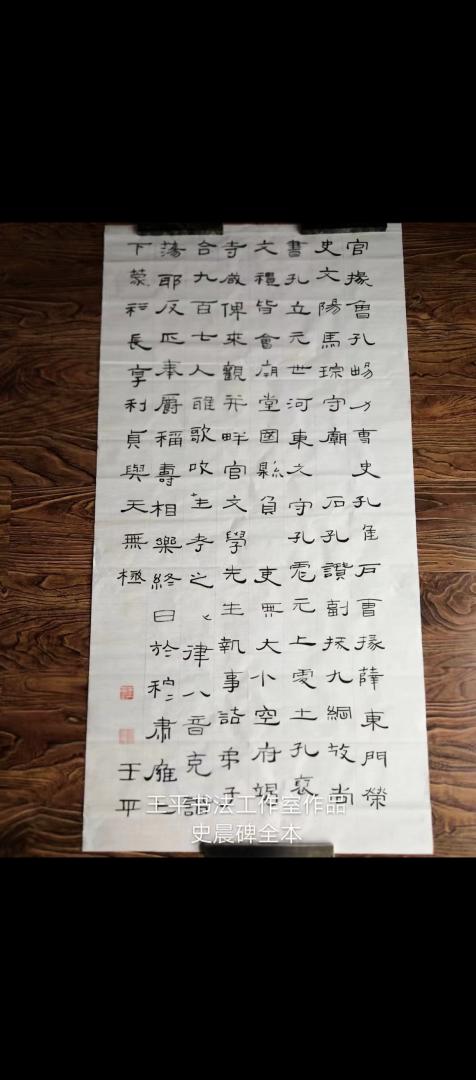 官掾魯孔暘功曹史孔淮戶曹掾薛東門榮
史文陽馬琮守廟石孔讚副掾綱故尚
書孔立元世河東太守孔彪元上處士孔褒
文禮皆會廟堂國縣員吏無大小空府竭
寺咸俾來觀并畔官文學先生執事諸弟子
合九百七人雅歌吹笙考之律八音克諧
蕩耶反正奉爵稱壽相樂終日於穆肅雍
下蒙福長享利貞與天無極
王平
王平书法工作室作品
史晨碑全本